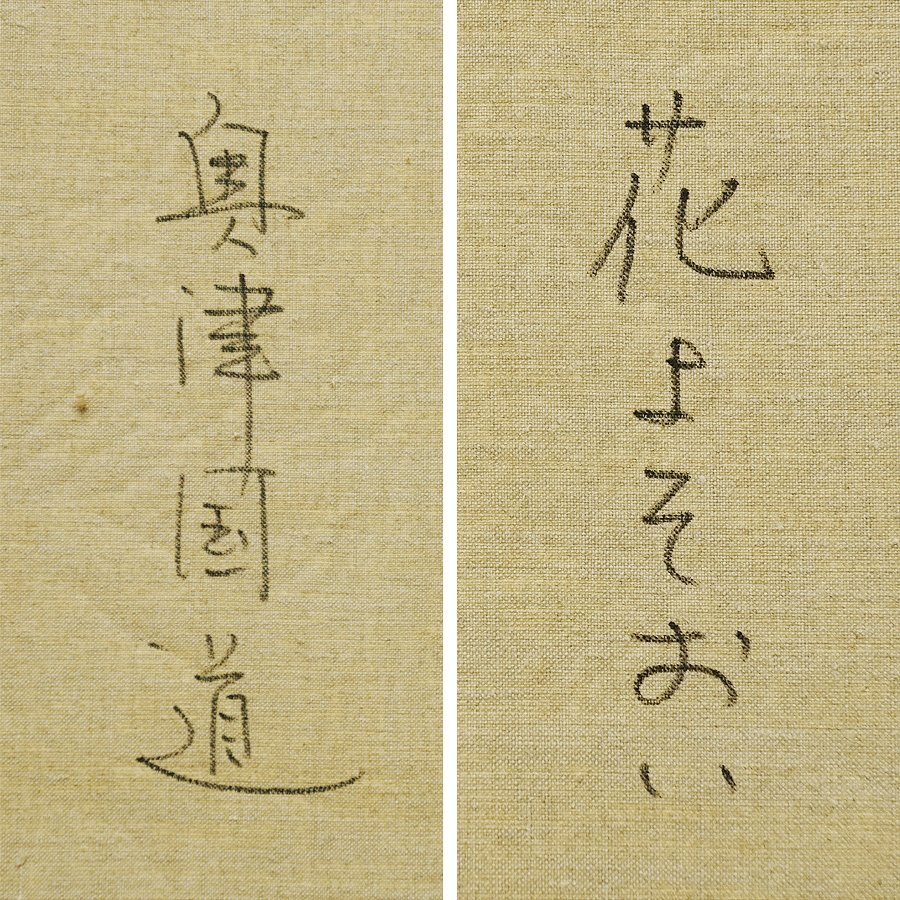 花よそおい
奥津国道